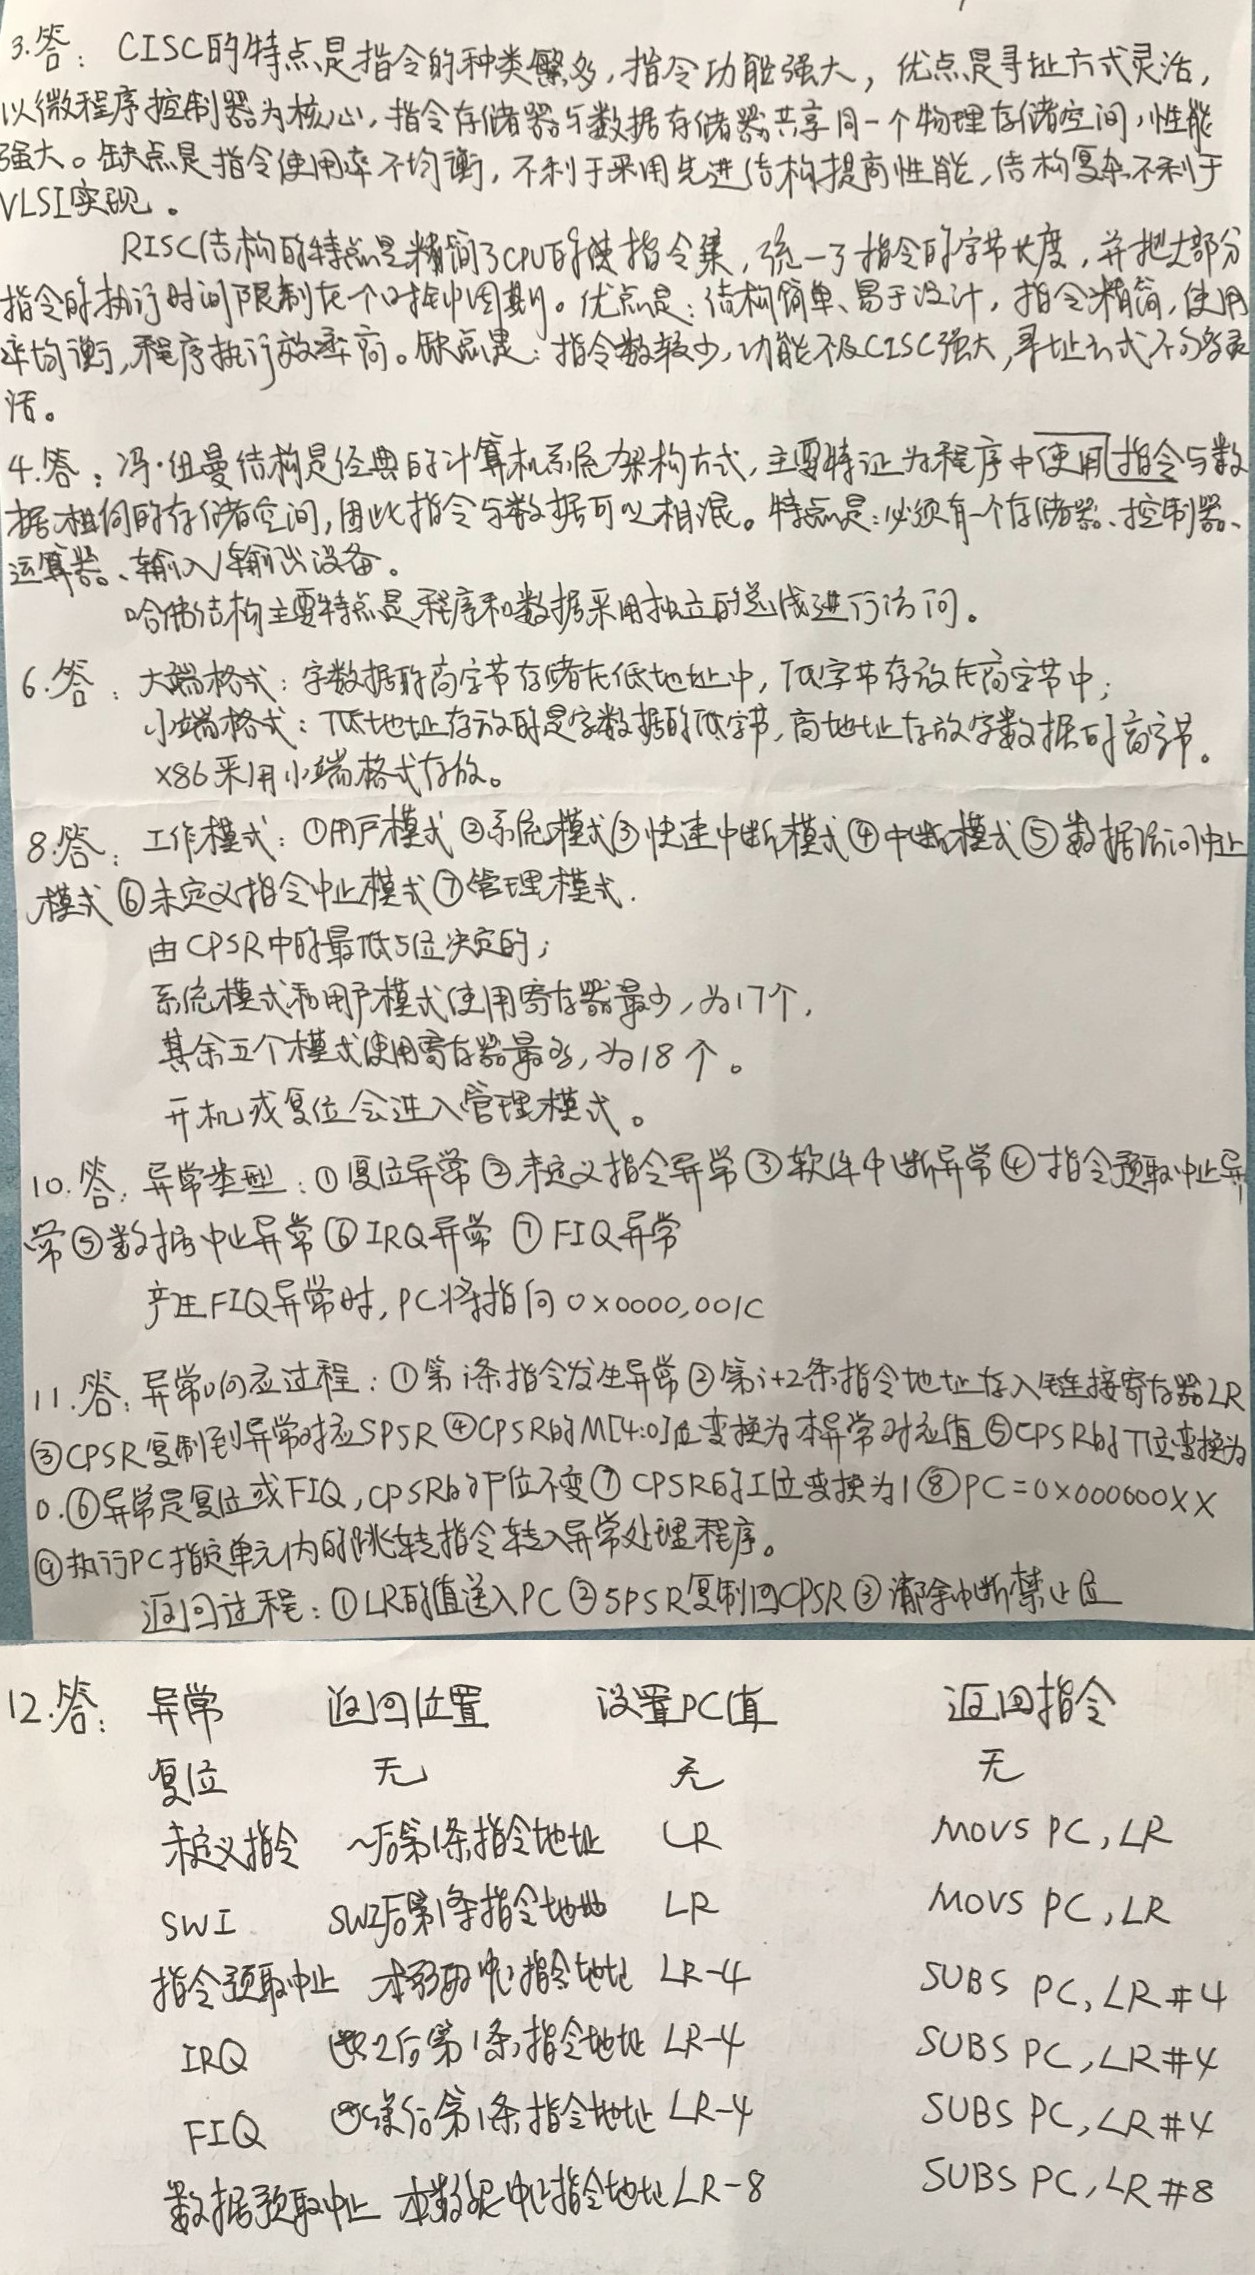 3.答：CISC的特点是指令的种类繁多，指令功能强大，优点是寻址方式灵活，
以微程序控制器为核心，指令存储器与数据存储器共享同一个物理存储空间，性能
强大。缺点是指令使用率不均衡，不利于采用先进结构提高性能，结构复杂不利于
VLSI实现。
RISC结构的特点是精简了CPU的指令集，统一了指令的字节长度，并把大部分
指令的执行时间限制在一个时钟周期。优点是：结构简单、易于设计，指令精简，使用
率均衡，程序执行效率高。缺点是：指令数较少，功能不及CISC强大，寻址方式不够灵
活。
4.答：冯·纽曼结构是经典的计算机系统架构方式，主要特征为程序中使用指令与数
据相同的存储空间，因此指令与数据可以相混。特点是：必须有一个存储器、控制器、
运算器、输入/输出设备。
哈佛结构主要特点是程序和数据采用独立的总线进行访问。
6.答：大端格式：字数据的高字节存储在低地址中，低字节存放在高字节中；
小端格式：低地址存放的是字数据的低字节，高地址存放字数据的高字节。
X86采用小端格式存放。
8.答：工作模式：①用户模式②系统模式③快速中断模式④中断模式⑤数据访问中止
模式⑥未定义指令中止模式⑦管理模式.
由CPSR中的最低5位决定的；
系统模式和用户模式使用寄存器最少，为17个，
其余五个模式使用寄存器最多，为18个。
开机或复位会进入管理模式。
10.答：异常类型：①复位异常②未定义指令异常③软件中断异常④指令预取中止异
常⑤数据中止异常⑥IRQ异常 ⑦FIQ异常
产生FIQ异常时，PC将指向0x0000,001C
11.答：异常响应过程：①第i条指令发生异常②第i+2条指令地址存入链接寄存器LR
③CPSR复制到异常对应SPSR④CPSR的M[4:0]位变换为本异常对应值⑤CPSR的T位变换为
0.⑥异常是复位或FIQ，CPSR的F位不变⑦CPSR的I位变换为1⑧PC=0x000000XX
⑨执行PC指定单元内的跳转指令转入异常处理程序。
返回过程：①LR的值送入PC②SPSR复制回CPSR③清除中断禁止位
12.答：异常 返回位置 设置PC值 返回指令
复位 无 无 无
未定义指令 ～后第1条指令地址 LR MOVS PC,LR
SWI SWI后第1条指令地址 LR MOVS PC,LR
指令预取中止 本预取中止指令地址 LR-4 SUBS PC,LR#4
IRQ 后第1条指令地址 LR-4 SUBS PC,LR#4
FIQ 后第1条指令地址 LR-4 SUBS PC,LR#4
数据预取中止 本数据中止指令地址 LR-8 SUBS PC,LR#8